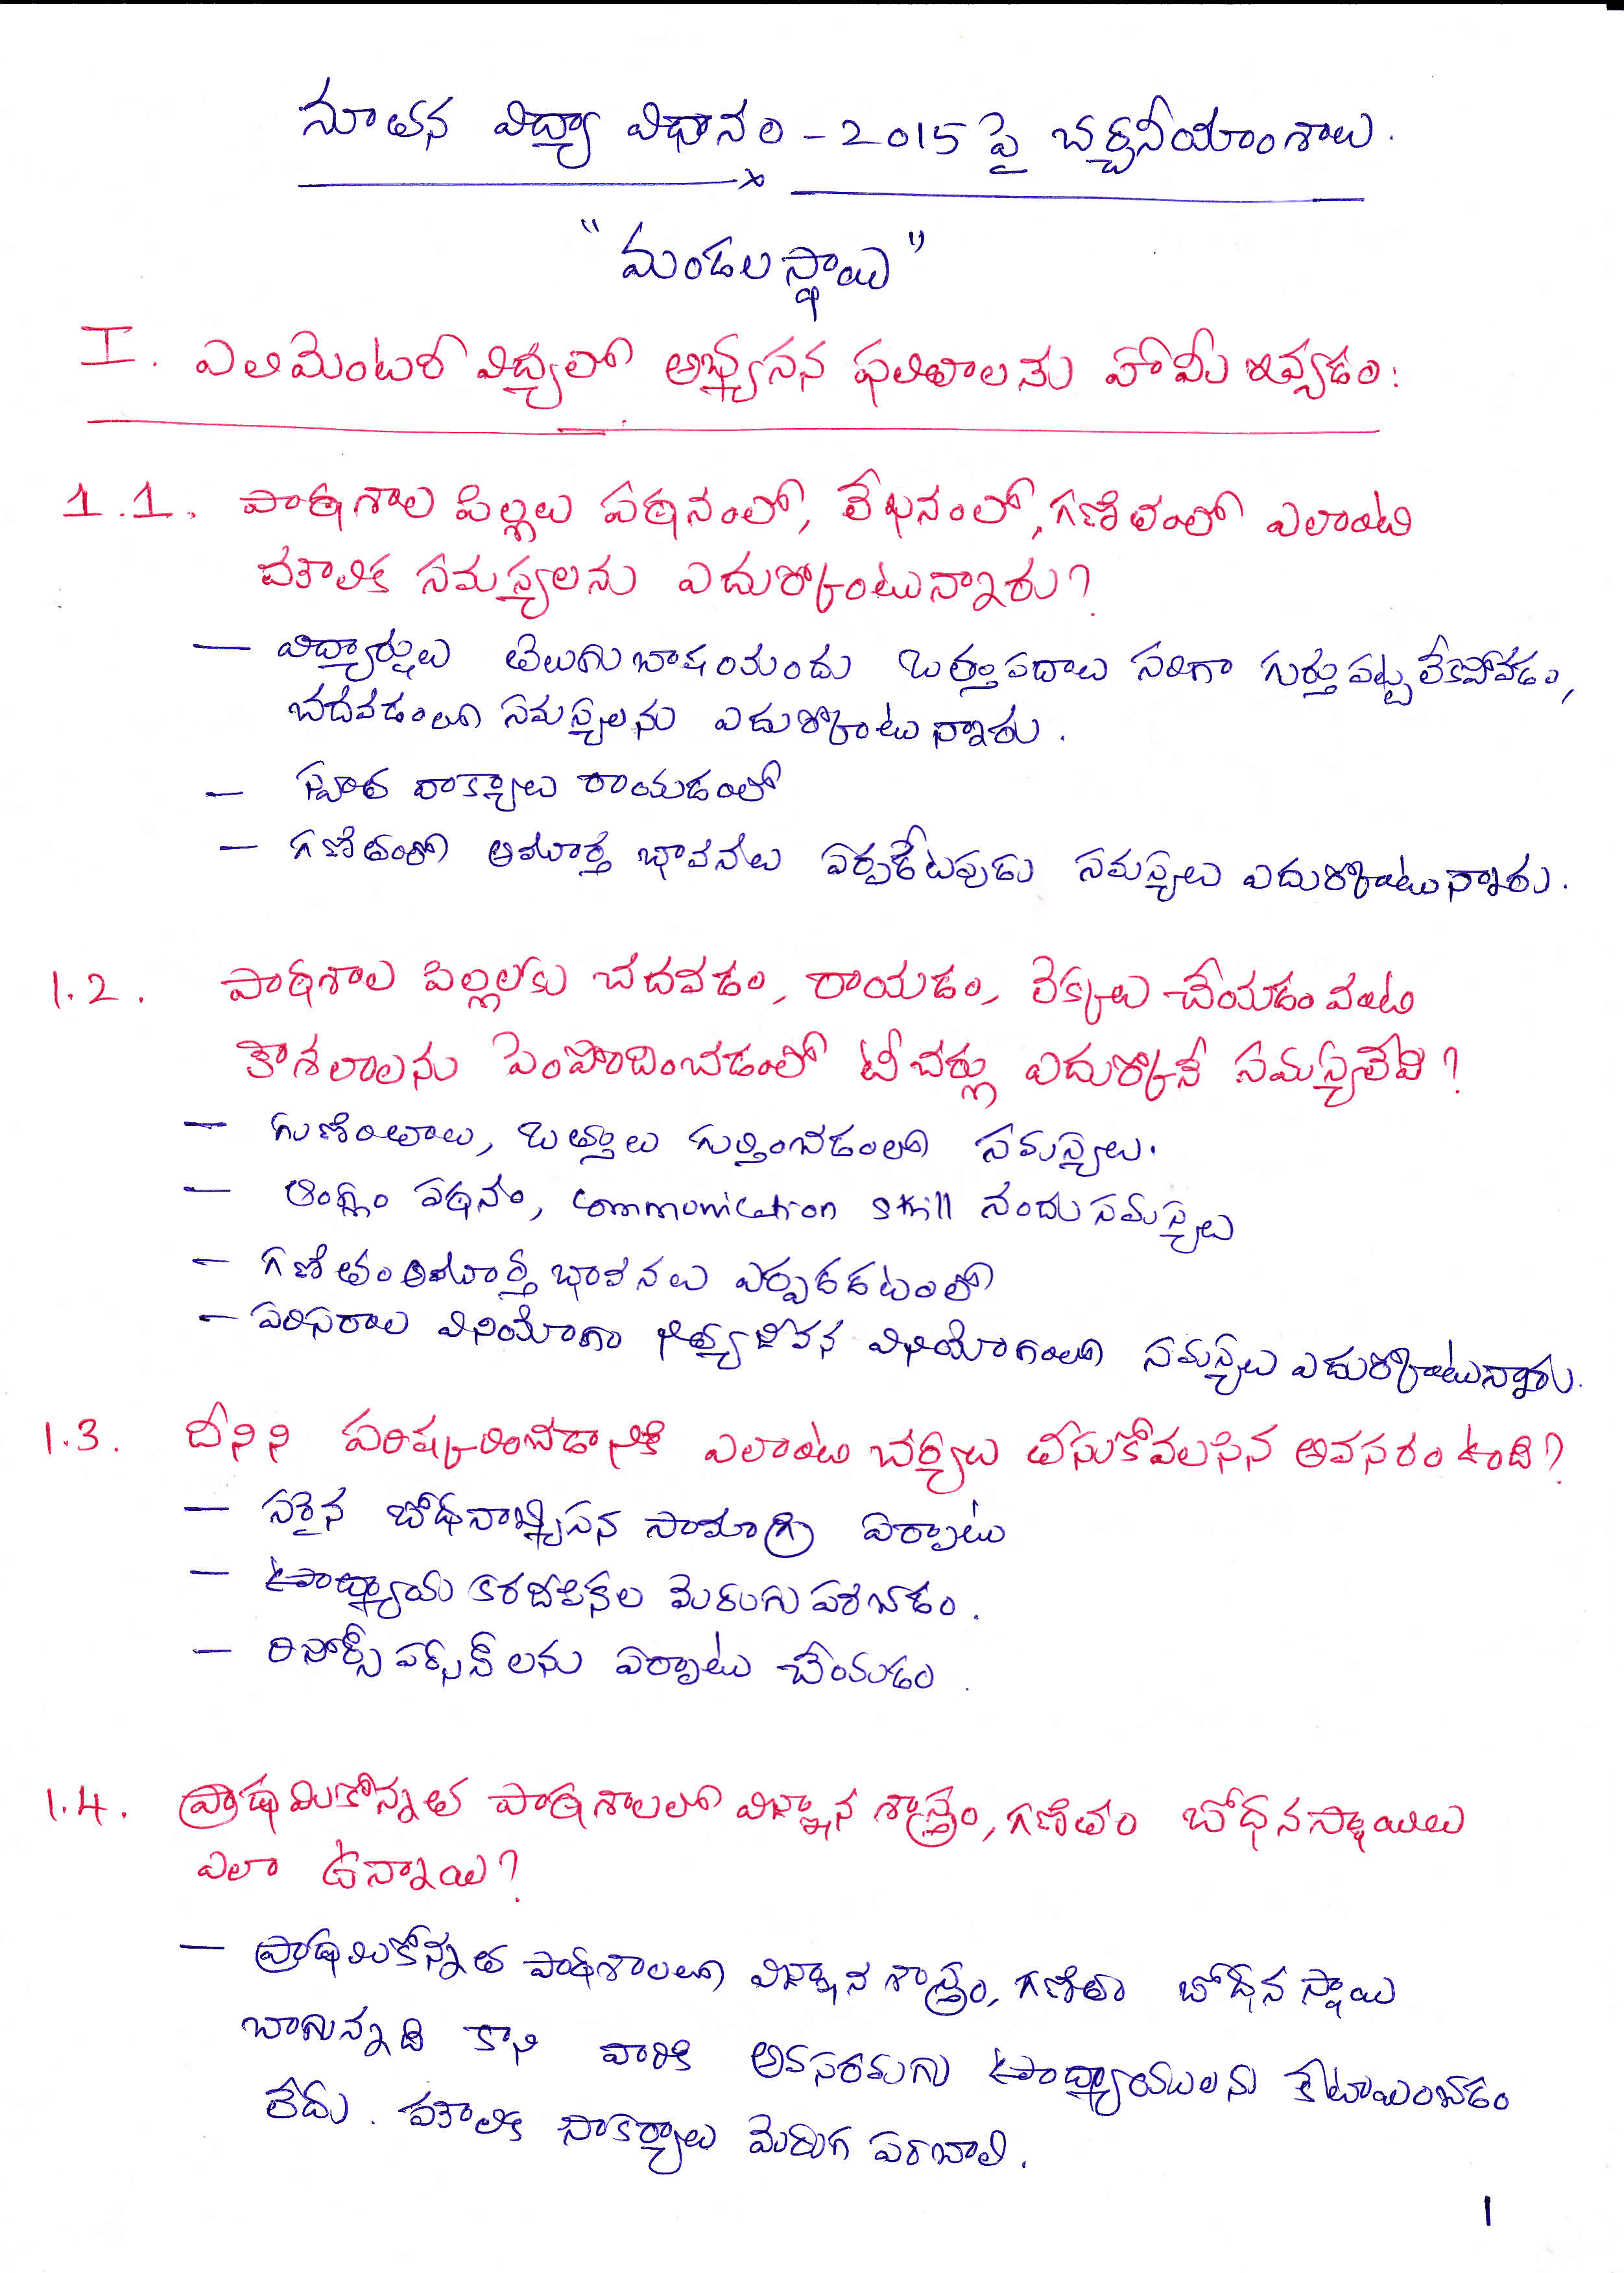 నూతన విద్యా విధానం - 2015 పై చర్చనీయాంశాలు.
"మండలస్థాయి"
I. ఎలిమెంటరీ విద్యలో అభ్యసన ఫలితాలను హామీ ఇవ్వడం:
1.1. పాఠశాల పిల్లలు పఠనంలో, లేఖనంలో, గణితంలో ఎలాంటి
మౌలిక సమస్యలను ఎదుర్కోంటున్నారు?
— విద్యార్థులు తెలుగు బాషయందు ఒత్తుపదాలు సరిగా గుర్తుపట్టలేకపోవడం,
చదవడంలో సమస్యలను ఎదుర్కోంటున్నారు.
— పూర్తి వాక్యాలు రాయడంలో
— గణితంలో అమూర్త భావనలు ఏర్పడేటపుడు సమస్యలు ఎదుర్కోంటున్నారు.
1.2. పాఠశాల పిల్లలకు చదవడం, రాయడం, లెక్కలు చేయడం వంటి
కౌశలాలను పెంపొందించడంలో టీచర్లు ఎదుర్కోనే సమస్యలేవి?
— గుణింతాలు, ఒత్తులు గుర్తించడంలో సమస్యలు.
— ఆంగ్లం పఠనం, communication skill నందు సమస్యలు
— గణితం అమూర్త భావనలు ఏర్పరచటంలో
— పరిసరాల వినియోగం నిత్యజీవన వినియోగంలో సమస్యలు ఎదుర్కోంటున్నారు.
1.3. దీనిని పరిష్కరించడానికి ఎలాంటి చర్యలు తీసుకోవలసిన అవసరం ఉంది?
— సరైన బోధనాభ్యసన సామాగ్రి ఏర్పాటు
— ఉపాధ్యాయ కరదీపికల మెరుగుపరచడం.
— రిసోర్స్ పర్సన్ లను ఏర్పాటు చేయడం.
1.4. ప్రాథమికోన్నత పాఠశాలలలో విజ్ఞాన శాస్త్రం, గణితం బోధన స్థాయిలు
ఎలా ఉన్నాయి?
— ప్రాథమికోన్నత పాఠశాలలలో విజ్ఞాన శాస్త్రం, గణితం బోధన స్థాయి
బాగున్నది కాని వారికి అవసరమగు ఉపాధ్యాయులను కేటాయించడం
లేదు. మౌలిక సౌకర్యాలు మెరుగ పరచాలి.
1